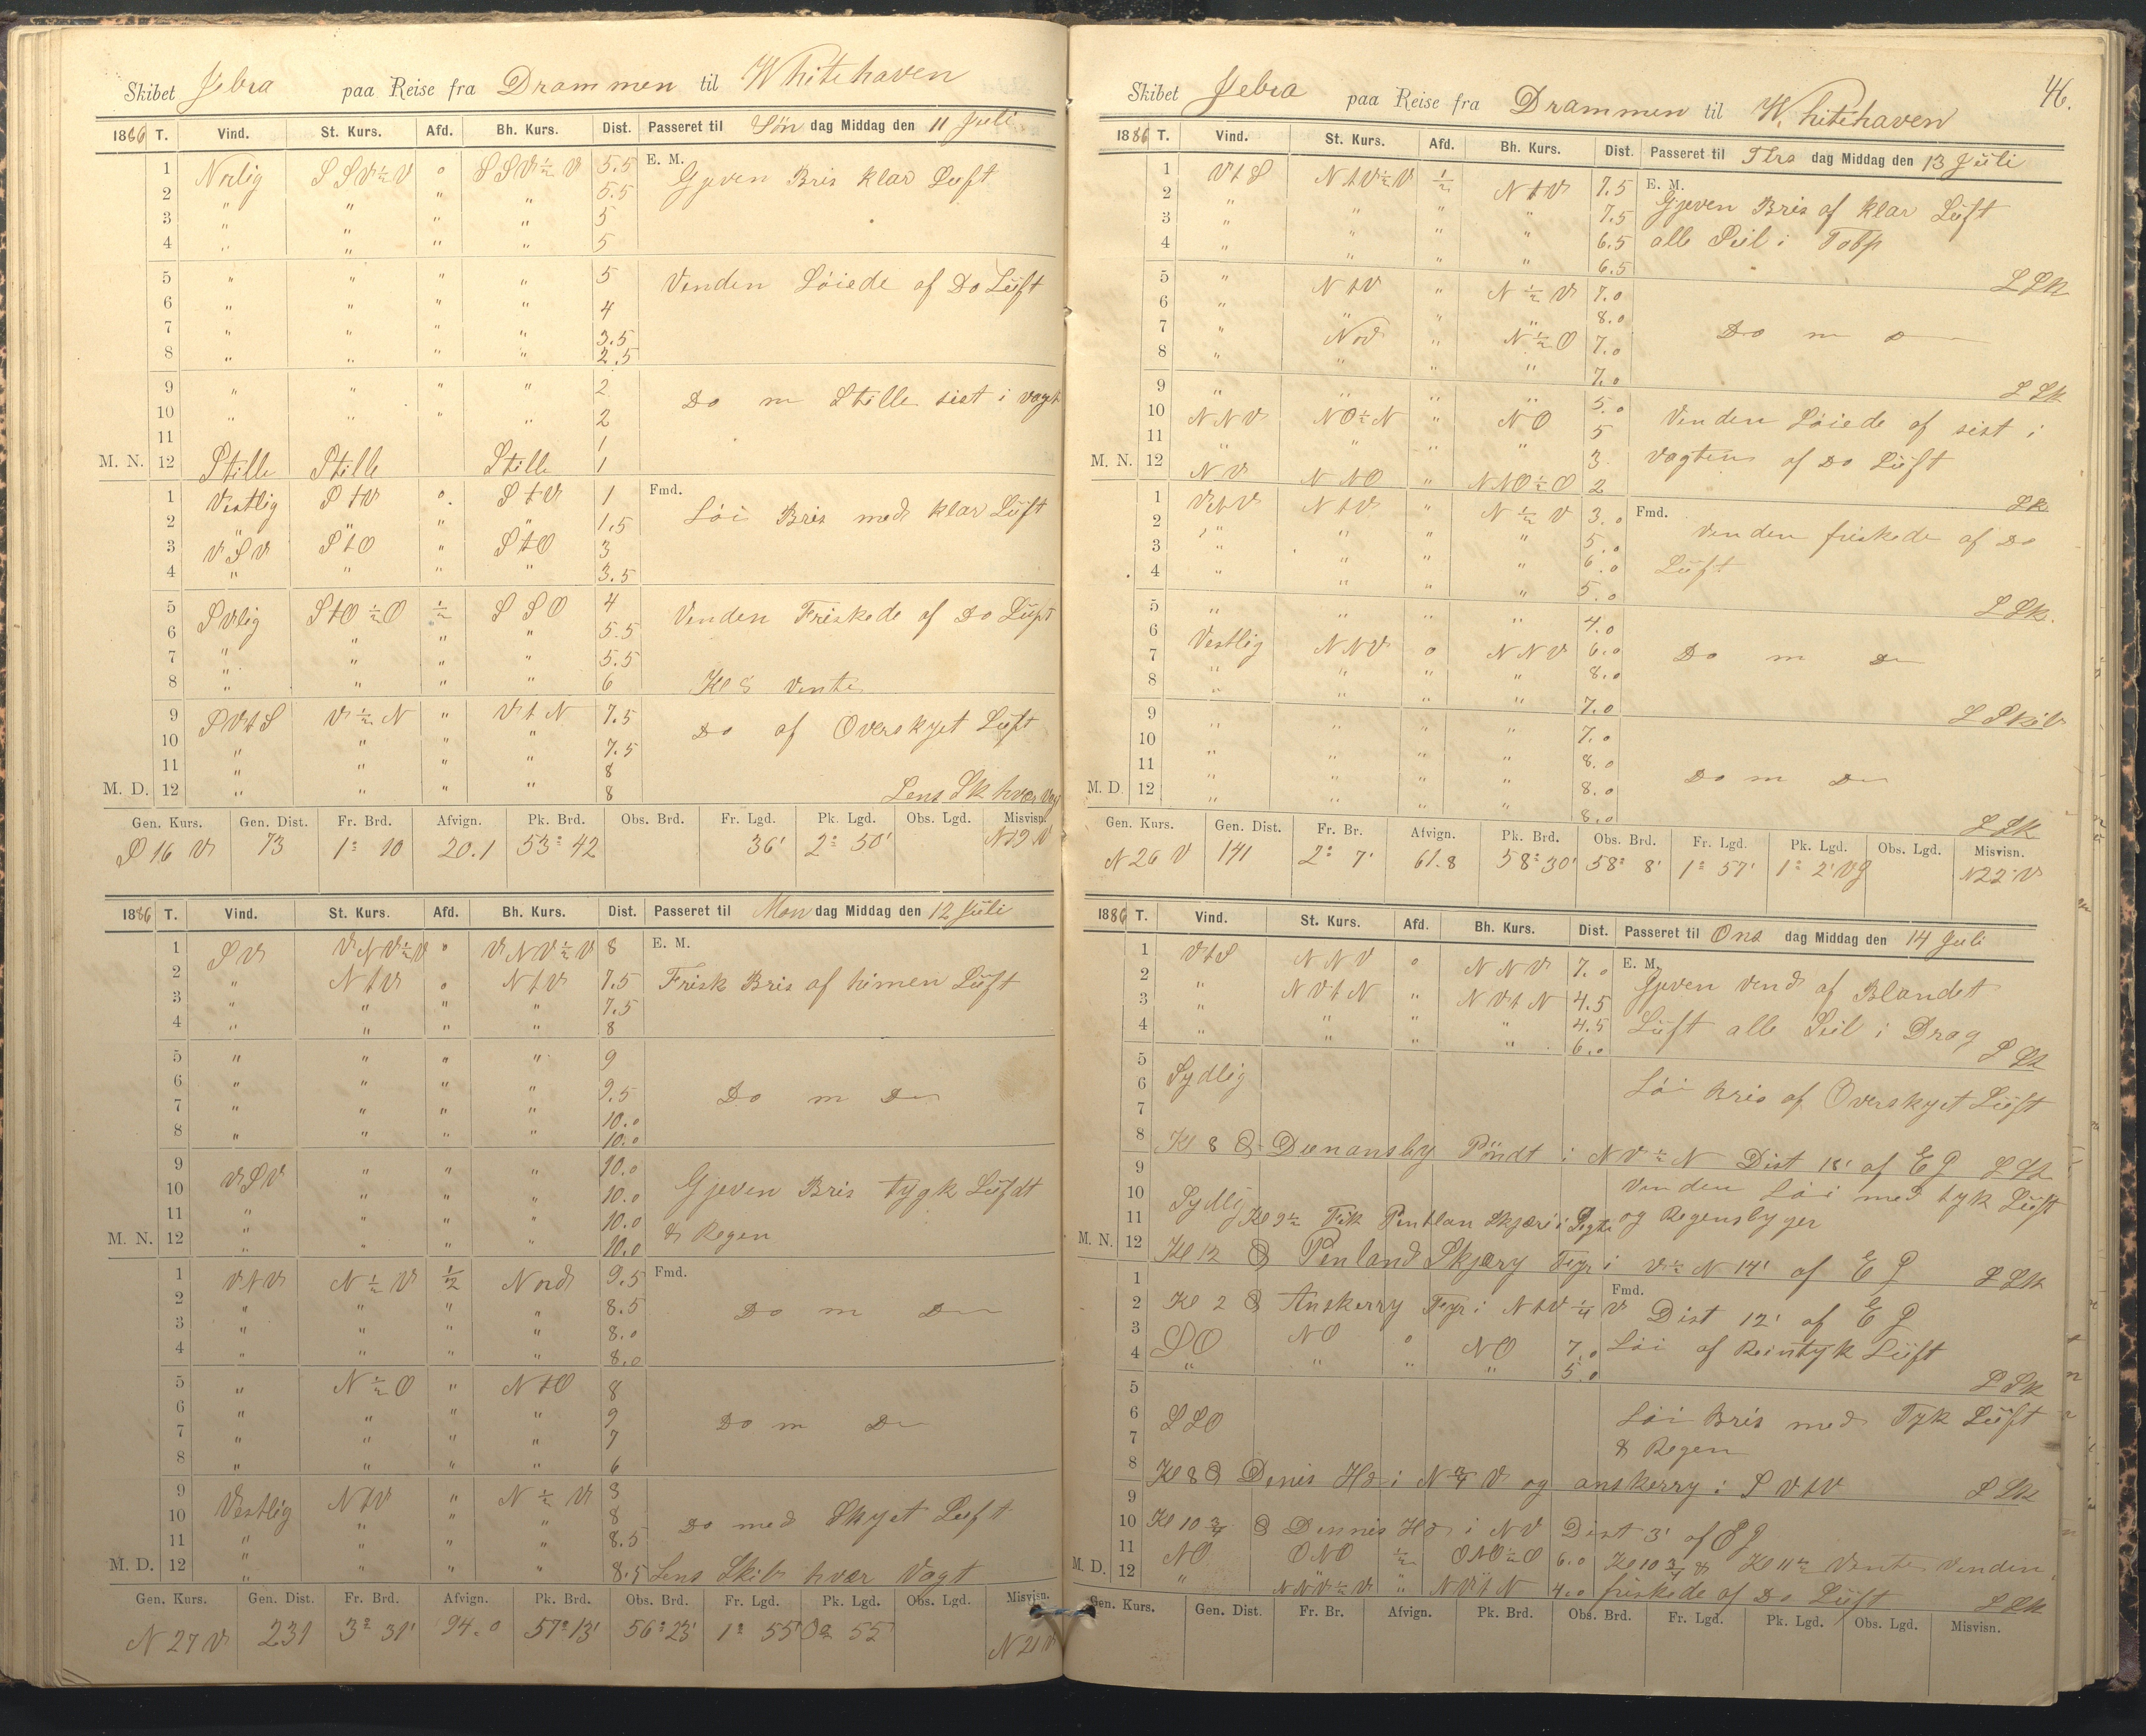 Skibet Zebra paa Reise fra Drammen til Whitehaven
1886 T. Vind. St. Kurs. Afd. Bh. Kurs. Dist. Passeret til Søn dag Middag den 11 Juli
1 Norlig S S V ½ V o S S V ½ V 5.5 E. M.
Gjeven Bris klar Luft
2 " " " " 5.5
3 " " " " 5
4 " " " " 5
5 " " " " 5 Venden Løiede af Do Luft
6 " " " " 4
7 " " " " 3.5
8 " " " " 2.5
9 " " " " 2 Do m Stille sist i vagt
10 " " " " 2
11 1
M. N. 12 Stille Stille Stille 1
1 Vestlig S t V o S t V 1 Fmd.
Løi Bris med klar Luft
2 " " " " 1.5
3 V S V S t O " S t O 3
4 " " " " 3.5
5 S Vlig S t O ½ O ½ S S O 4 Venden Friskede af Do Luft
6 " " " 5.5
7 " " " " 5.5
8 " " " " 6 Kl 8 vente
9 S V t S V ½ N " V t N 7.5 Do af Overskyet Luft
10 " " " " 7.5
11 " " " " 8
M. D. 12 " " " " 8 Lens Sk hver Vag
Gen. Kurs. Gen. Dist. Fr. Brd. Afvign. Pk. Brd. Obs. Brd. Fr. Lgd. Pk. Lgd. Obs. Lgd. Misvisn.
S 16 V 73 1° 10 20.1 53° 42 36' 2° 50' N 19 V
1886 T. Vind. St. Kurs. Afd. Bh. Kurs. Dist. Passeret til Man dag Middag den 12 Juli
1 S V V N V ½ V o V N V ½ V 8 E. M.
2 " N t V o N t V 7.5 Frisk Bris af himen Luft
3 " " " " 7.5
4 " " " " 8
5 " " " " 9
6 " " " " 9.5 Do m Do
7 " " " " 10.0
8 " " " " 10.0
9 V S V " " " 10.0
10 " " " 10.0 Gjeven Bris tygk Lufdt
11 " " " " 10.0
M. N. 12 " " " " 10.0 & Regen
1 V t V N ½ V ½ Nord 9.5 Fmd.
2 " " " " 8.5 Do m Do
3 " " " " 8.0
4 " " " " 8.0
5 " N ½ O " N t O 8
6 " " " " 9 Do m Do
7 " " " " 7
8 " " " " 6
9 Vestlig N t V " N ½ V 8
10 " " " 8 Do med Skyet Luft
11 " " " " 8.5
M. D. 12 " " " " 8.5 Lens Skib hver Vagt
Gen. Kurs. Gen. Dist. Fr. Brd. Afvign. Pk. Brd. Obs. Brd. Fr. Lgd. Pk. Lgd. Obs. Lgd. Misvisn.
N 27 V 231 3° 31' 94.0 57° 13' 56° 23' 1° 55' 0° 55' N 21 V
46.
Skibet Zebra paa Reise fra Drammen til Whitehaven
1886 T. Vind. St. Kurs. Afd. Bh. Kurs. Dist. Passeret til Tirs dag Middag den 13 Juli
1 V t S N t V ½ V ½ N t V 7.5 E. M.
2 " " " " 7.5 Gjeven Bris af klar Luft
3 " " " " 6.5 alle Seil i Topp
4 " " " " 6.5
L Sk
5 " N t V " N ½ V 7.0
6 " " " " 8.0 Do m o
7 " Nod " N ½ O 7.0
8 " " " " 7.0
L Sk
9 " " " " 5.0
10 N N V N O ½ N " N O 5 Venden Løiede af sist i
11 " " " " 3 vagten af Do Luft
M. N. 12 N V N N O " N N O ½ O 2
L Sk
1 V t V N t V " N ½ V 3.0 Fmd.
2 " " " " 5.0 Venden friskede af Do
3 " " " " 6.0 Luft
4 " " " " 5.0
L Sk.
5 " " " " 4.0
6 Vestlig N N V o N N V 6.0 Do m Do
7 " " " " 8.0
8 " " " " 7.0
L Skib
9 " " " " 7.0
10 " " " " 8.0
11 " " " " 8.0 Do m Do
M. D. 12 " " " " 8.0
L Sk
Gen. Kurs. Gen. Dist. Fr. Br. Afvign. Pk. Brd. Obs. Brd. Fr. Lgd. Pk. Lgd. Obs. Lgd. Misvisn.
N 26 V 141 2° 7' 61.8 58° 30' 58° 8' 1° 57' 1° 2' Vg N 22° V
1886 T. Vind. St. Kurs. Afd. Bh. Kurs. Dist. Passeret til Ons dag Middag den 14 Juli
1 V t S N N V o N N V 7.0 E. M.
2 " N V t N " N V t N 4.5 Gjeven vend af Blandet
3 " " " " 4.5 Luft alle Seil i Drag
4 " " " " 6.0 L Sk
5
6 Sydlig Løi Bris af Overskyet Luft
7
8 Kl 8 Dunansby Pöndt i N V ½ N Dist 18' af E G L Sk
9 Venden Løi med tyk Luft
10 Sydlig
11 Kl 9½ Fik Pentlan Skjæri i Sigte og Regensbyger
M. N. 12 Kl 12 Penland Skjæry Fyr i V ½ N 14' af E G L Sk
1 Fmd.
2 Kl 2 Anskerry Fyr i N t V ¼ V Dist 12' af E G
3 S O N O o N O 7.0 Løi af Reintyk Luft
4 " " " " 5.0
L Sk
5
6 S S O Løi Bris med Tyk Luft
7 & Regen
8 Kl 8 Denis Hd i N ¾ V og anskerry i S V t V L Sk
9
10 Kl 10 ¾ Dennis Hd i N V Dist 3' af E G
11 N O O N O ½ O N O ½ O 6.0 Kl 10 ¾ & Kl 11 ½ Vente Venden
M. D. 12 " N N V ½ V " N V t N 4.0 friskede af Do Luft L Sk
Gen. Kurs. Gen. Dist. Fr. Br. Afvign. Pk. Brd. Obs. Brd. Fr. Lgd. Pk. Lgd. Obs. Lgd. Misvisn.